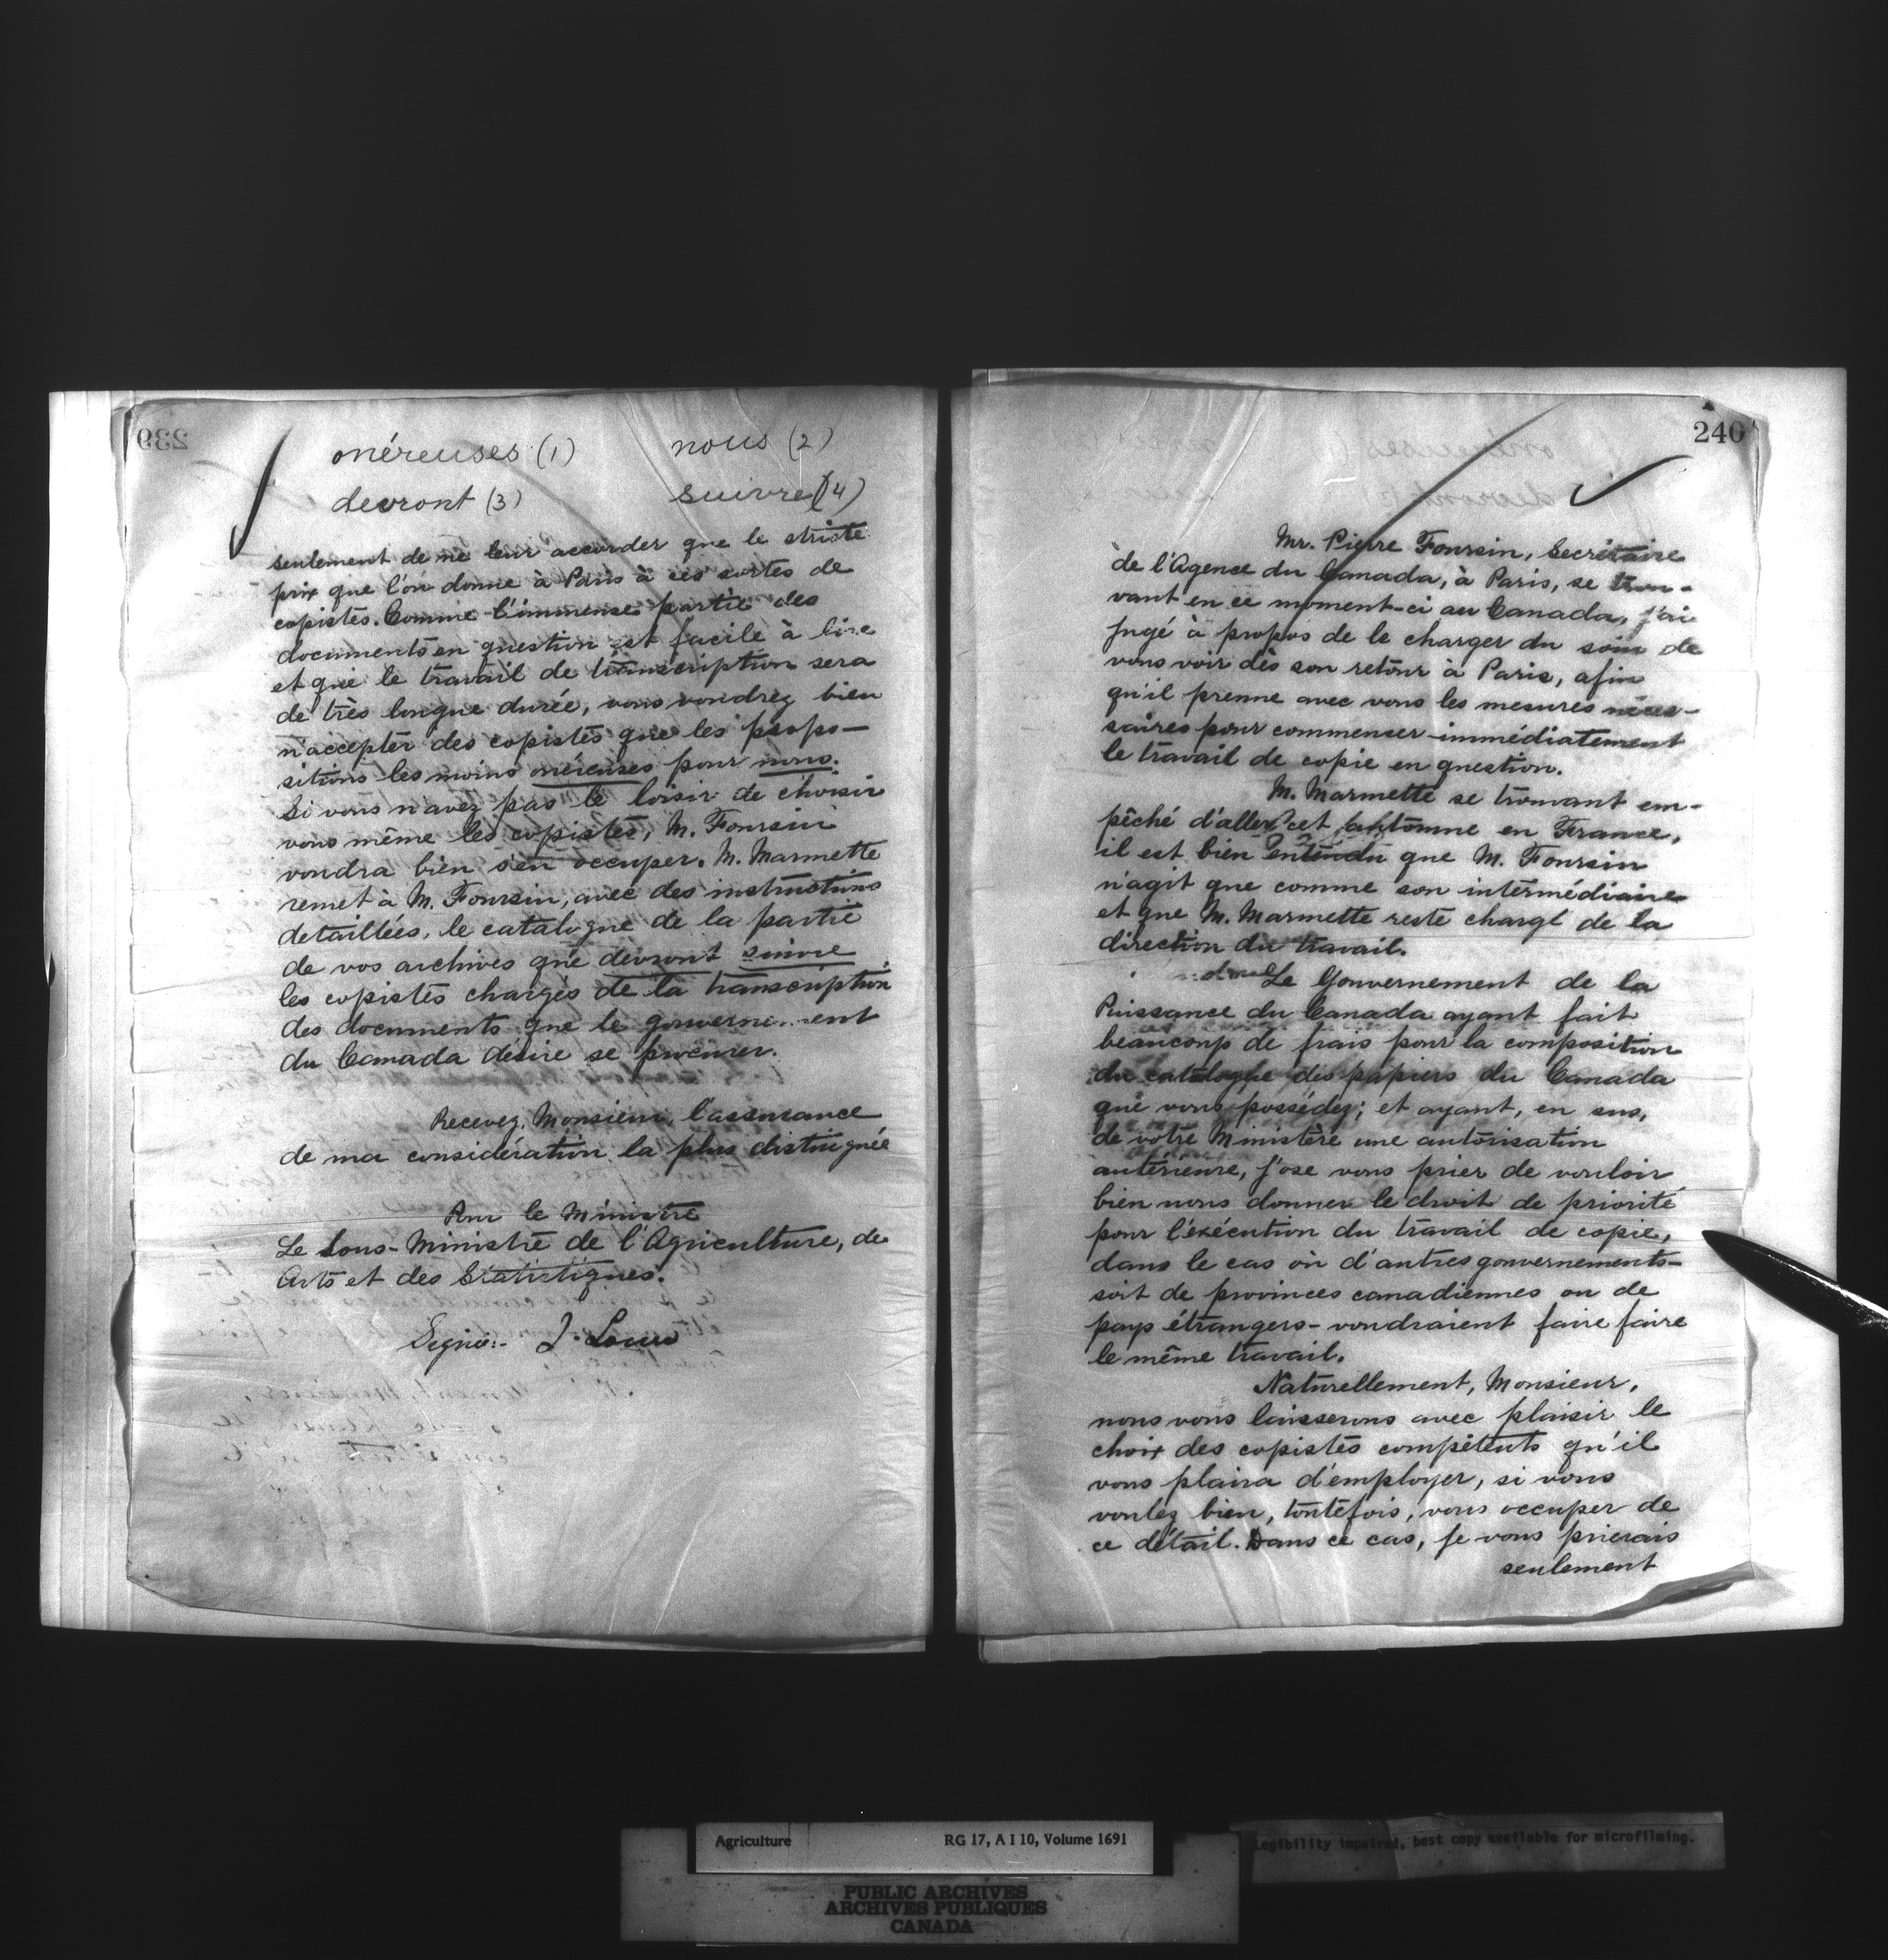 239
onéreuses (1) nous (2)
devront (3) suivre (4)
seulement de ne leur accorder que le stricte
prix que l'on donne à Paris à ces sortes de
copistes. Comme l'immense partie des
documents en question est facile à lire
et que le travail de transcription sera
de très longue durée, vous voudrez bien
n'accepter des copistes que les propo-
sitions les moins onéreuses pour nous.
Si vous n'avez pas le loisir de choisir
vous même les copistes, M. Foursin
voudra bien s'en occuper. M. Marmette
remet à M. Foursin, avec des instructions
detaillées, le catalogue de la partie
de vos archives que devront suivre
les copistes chargés de la transcription
des documents que le gouvernement
du Canada désire se procurer.
Recevez, Monsieur, l'assurance
de ma considération la plus distinguée
Pour le Ministre
Le Sous-Ministre de l'Agriculture, des
Arts et des Statistiques.
Signé:- J. Lowe
240
Mr. Pierre Foursin, Secrétaire
de l'Agence du Canada, à Paris, se trou-
vant en ce moment-ci au Canada, j'ai
jugé à propos de le charger du soin de
vous voir dès son retour à Paris, afin
qu'il prenne avec vous les mesures néces-
saires pour commencer immédiatement
le travail de copie en question.
M. Marmette se trouvant em-
pêché d'aller cet automne en France,
il est bien entendu que M. Foursin
n'agit que comme son intermédiaire
et que M. Marmette reste chargé de la
direction du travail.
Le Gouvernement de la
Puissance du Canada ayant fait
beaucoup de frais pour la composition
du catalogue des papiers du Canada
que vous possédez; et ayant, en sus,
de votre Ministère une autorisation
antérieure, j'ose vous prier de vouloir
bien nous donner le droit de priorité
pour l'éxécution du travail de copie,
dans le cas où d'autres gouvernements-
soit de provinces canadiennes ou de
pays étrangers- voudraient faire faire
le même travail.
Naturellement, Monsieur,
nous vous laisserons avec plaisir le
choix des copistes compétents qu'il
vous plaira d'employer, si vous
voulez bien, toutefois, vous occuper de
ce détail. Dans ce cas, je vous prierais
seulement
Agriculture RG 17, A I 10, Volume 1691
Legibility impaired, best copy available for microfilming.
PUBLIC ARCHIVES
ARCHIVES PUBLIQUES
CANADA